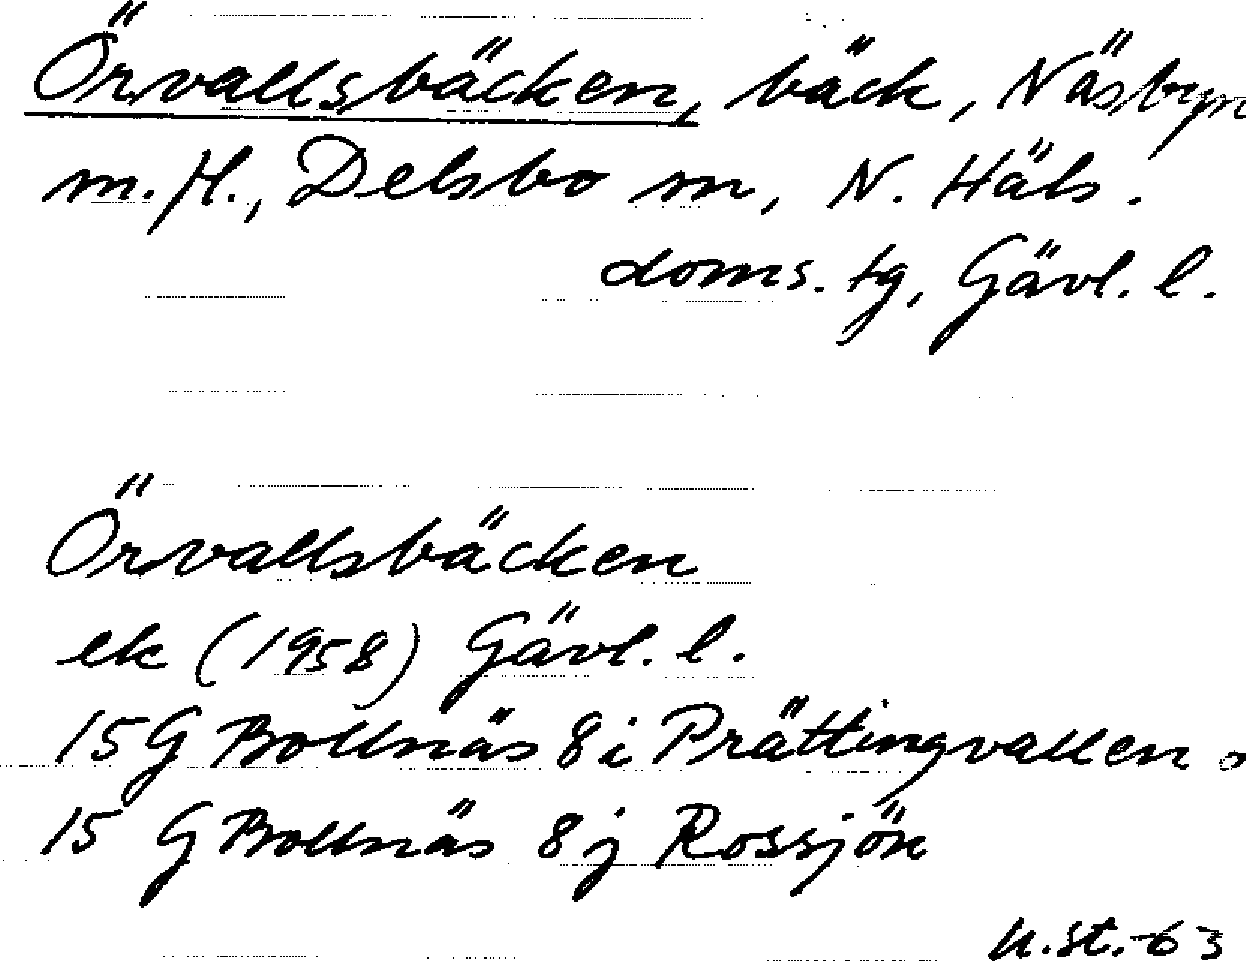 Örvallsbäcken, bäck, Näsbyn
m. fl., Delsbo sn, N. Häls.
doms. tg, Gävl. l.
Örvallsbäcken
ek (1958) Gävl. l.
15G Bollnäs 8i Prättingvallen o
15 G Bollnäs 8j Rossjön
u.st.-63